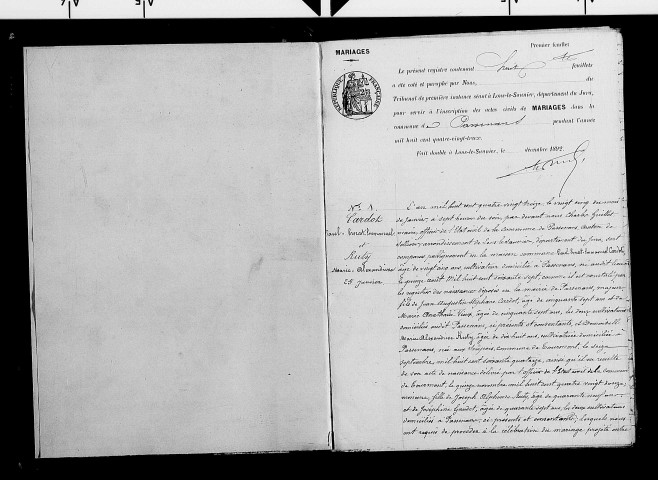 MARIAGES
Premier feuillet
Le présent registre contenant huit feuillets
a été coté et paraphé par Nous, du
Tribunal de première instance séant à Lons-le-Saunier, département du Jura,
pour servir à l'inscription des actes civils de MARIAGES dans la
commune de Passenans pendant l'année
mil huit cent quatre-vingt-treize.
Fait double à Lons-le-Saunier, le décembre 1892.
RÉPUBLIQUE FRANÇAISE
N° 1
Cardot
Ernest Emmanuel
et
Ruby
Marie Alexandrine
25 janvier
L'an mil huit cent quatre vingt treize, le vingt cinq du mois
de janvier, à sept heures du soir, par devant nous Charles
maire, officier de l'état civil de la commune de Passenans, canton de
Sellières, arrondissement de Lons le Saunier, département du Jura, sont
comparus publiquement en la maison commune Ernest Emmanuel Cardot,
âgé de vingt cinq ans, cultivateur domicilié à Passenans, né audit
le quinze août mil huit cent soixante sept comme il est constaté par
les registres des naissances déposés en la mairie de Passenans, majeur
fils de Jean Augustin Cardot, âgé de cinquante sept ans et de
Marie âgée de cinquante sept ans, les deux cultivateurs
domiciliés audit Passenans, ci présents et consentants, et Demoiselle
Marie Alexandrine Ruby, âgée de dix huit ans, cultivatrice domiciliée à
Passenans, née aux commune de Tourmont, le seize
septembre mil huit cent soixante quatorze, ainsi qu'il en résulte
de son acte de naissance délivré par l'officier de l'état civil de la commune
de Tourmont, le quinze novembre mil huit cent quatre vingt douze,
mineure, fille de Joseph Alphonse Ruby, âgé de quarante neuf ans
et de Joséphine Gaudot, âgée de quarante sept ans, les deux cultivateurs
domiciliés à Passenans, ci présents et consentants; lesquels nous
ont requis de procéder à la célébration du mariage projeté entre